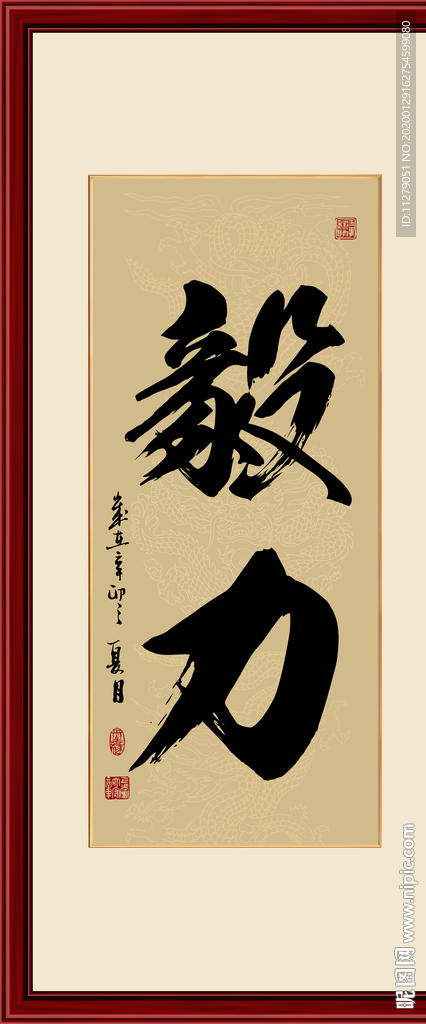 毅力
岁在辛卯之夏月
ID:11279051 NO:20200129162754599080
昵图网 www.nipic.com